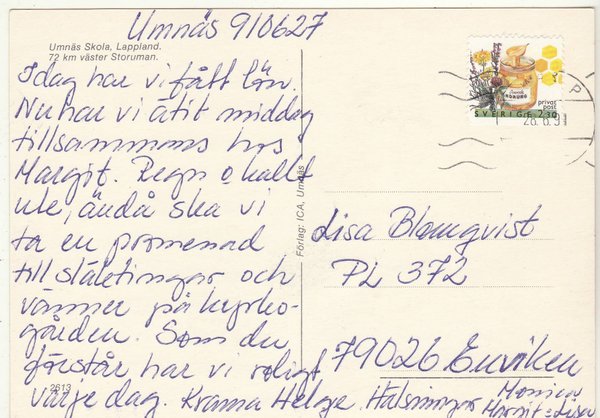 Umnäs 910627
Umnäs Skola, Lappland.
72 km väster Storuman.
Idag har vi fått lön.
Nu har vi ätit middag
tillsammans hos
Margit. Regn o kallt
ute, ändå ska vi
ta en promenad
till släktingar och
vänner på kyrko-
gården. Som du
förstår har vi roligt
varje dag. Krama Helge. Hälsningar Monica
2613
Förlag: ICA, Umnäs
privat
post
SVERIGE 2.30
28.6.91
Lisa Blomqvist
PL 372
79026 Enviken